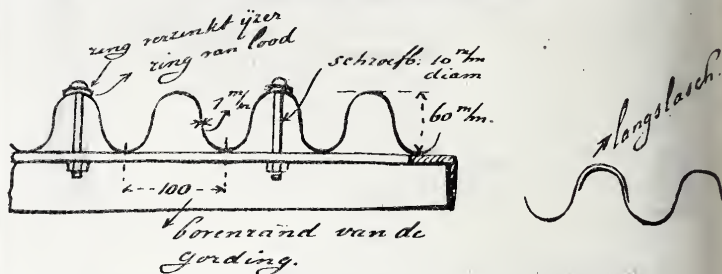 ring verzinkt ijzer
ring van lood
schroefb: 10 m/m
diam
1 m/m
60 m/m.
100
bovenrand van de
gording.
langslasch.